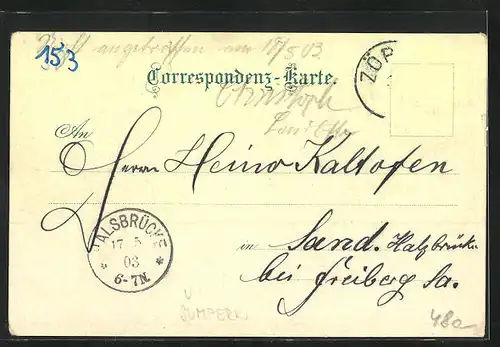 Nicht angetroffen am 17/5 03
153
Correspondenz-Karte.
ZÖP
An
Herrn Heino Kaltofen
HALSBRÜCKE
17 5
03
6-7N.
in Sand. Halsbrücke
bei Freiberg Sa.
ŠUMPERK
480